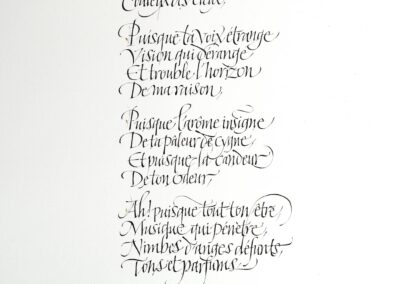 Puisque ta voix, étrange
Vision qui dérange
Et trouble l'horizon
De ma raison,
Puisque l'arôme insigne
De ta pâleur de cygne
Et puisque la candeur
De ton odeur,
Ah! puisque tout ton être,
Musique qui pénètre,
Nimbes d'anges défunts,
Tons et parfums,